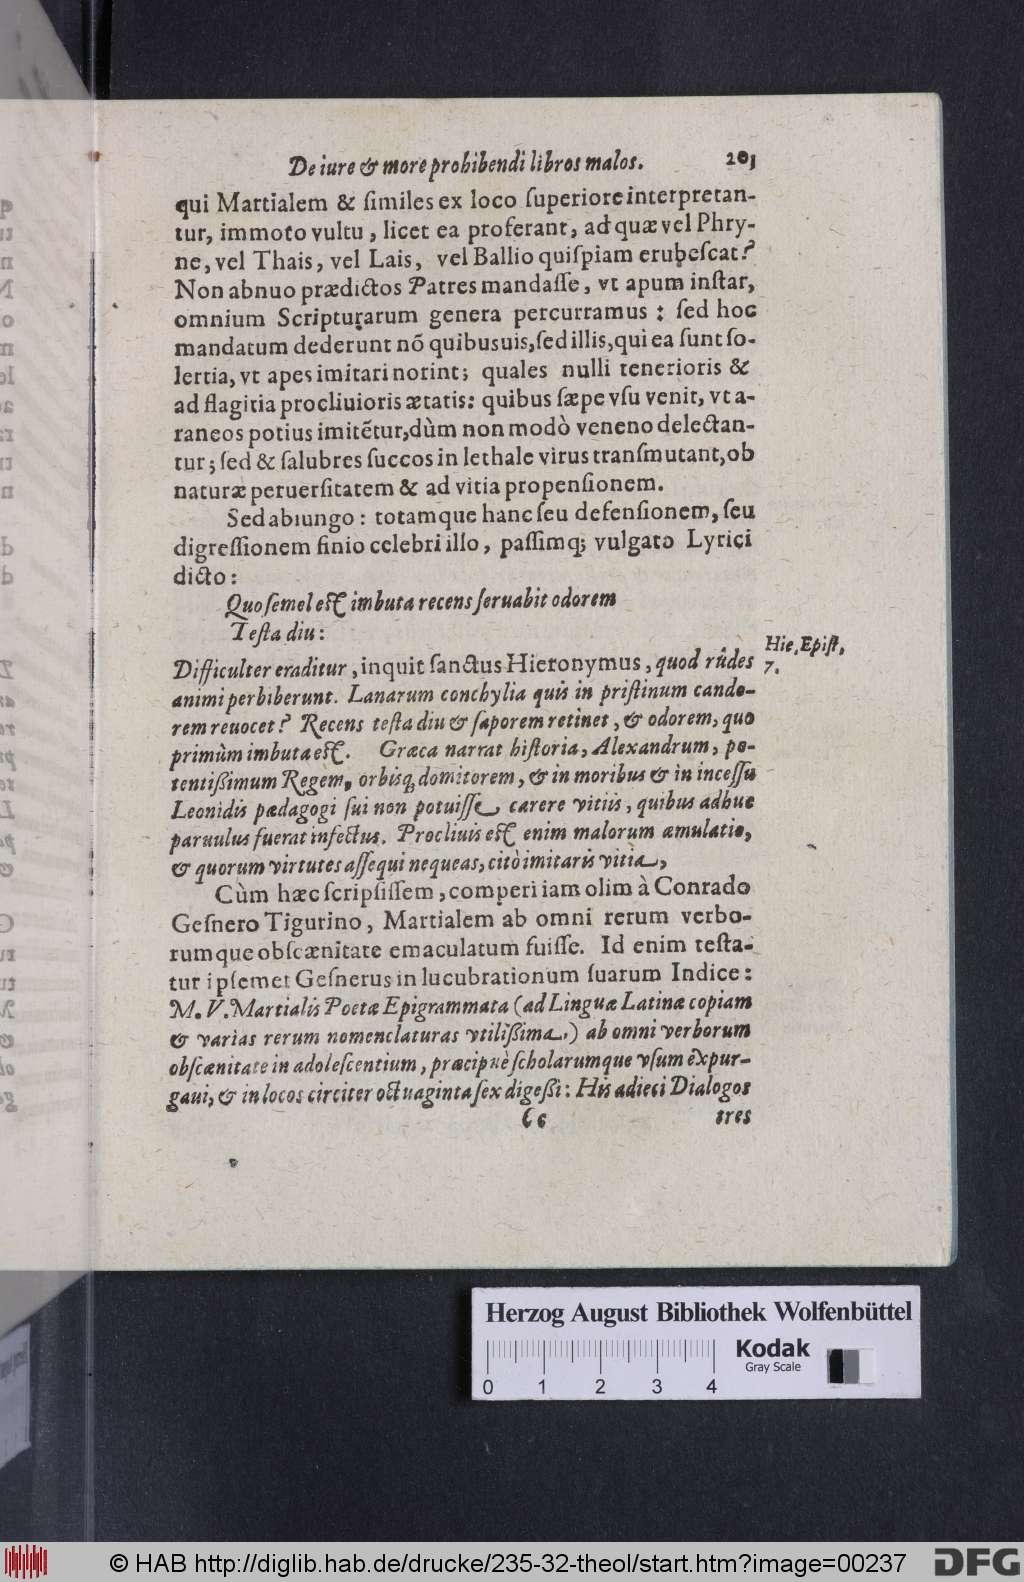 De iure & more prohibendi libros malos. 201
qui Martialem & ſimiles ex loco ſuperiore interpretan-
tur, immoto vultu, licet ea proferant, ad quæ vel Phry-
ne, vel Thais, vel Lais, vel Ballio quiſpiam erubeſcat?
Non abnuo prædictos Patres mandaſſe, vt apum inſtar,
omnium Scripturarum genera percurramus: ſed hoc
mandatum dederunt nõ quibusuis, ſed illis, qui ea ſunt ſo-
lertia, vt apes imitari norint; quales nulli tenerioris &
ad flagitia procliuioris ætatis: quibus ſæpe vſu venit, vt a-
raneos potius imitẽtur, dùm non modò veneno delectan-
tur; ſed & ſalubres ſuccos in lethale virus tranſmutant, ob
naturæ peruerſitatem & ad vitia propenſionem.
Sed abiungo: totamque hanc ſeu defenſionem, ſeu
digreſſionem finio celebri illo, paſſimq; vulgato Lyrici
dicto:
Quo ſemel eſt imbuta recens ſeruabit odorem
Teſta diu:
Difficulter eraditur, inquit ſanctus Hieronymus, quod rudes
Hie. Epiſt.
7.
animi perbiberunt. Lanarum conchylia quis in priſtinum cando-
rem reuocet? Recens teſta diu & ſaporem retinet, & odorem, quo
primùm imbuta eſt. Græca narrat hiſtoria, Alexandrum, po-
tentißimum Regem, orbisq; domitorem, & in moribus & in inceſſu
Leonidis pædagogi ſui non potuiſſe carere vitiis, quibus adhuc
paruulus fuerat infectus. Procliuis eſt enim malorum æmulatio,
& quorum virtutes aſſequi nequeas, citò imitaris vitia,
Cùm hæc ſcripſiſſem, comperi iam olim à Conrado
Geſnero Tigurino, Martialem ab omni rerum verbo-
rumque obſcænitate emaculatum fuiſſe. Id enim teſta-
tur ipſemet Geſnerus in lucubrationum ſuarum Indice:
M. V. Martialis Poetæ Epigrammata (ad Linguæ Latinæ copiam
& varias rerum nomenclaturas vtilißima,) ab omni verborum
obſcænitate in adoleſcentium, præcipuè ſcholarumque vſum expur-
gaui, & in locos circiter octuaginta ſex digeßi: His adieci Dialogos
Cc tres
Herzog August Bibliothek Wolfenbüttel
Kodak
Gray Scale
0 1 2 3 4
© HAB http://diglib.hab.de/drucke/235-32-theol/start.htm?image=00237
DFG